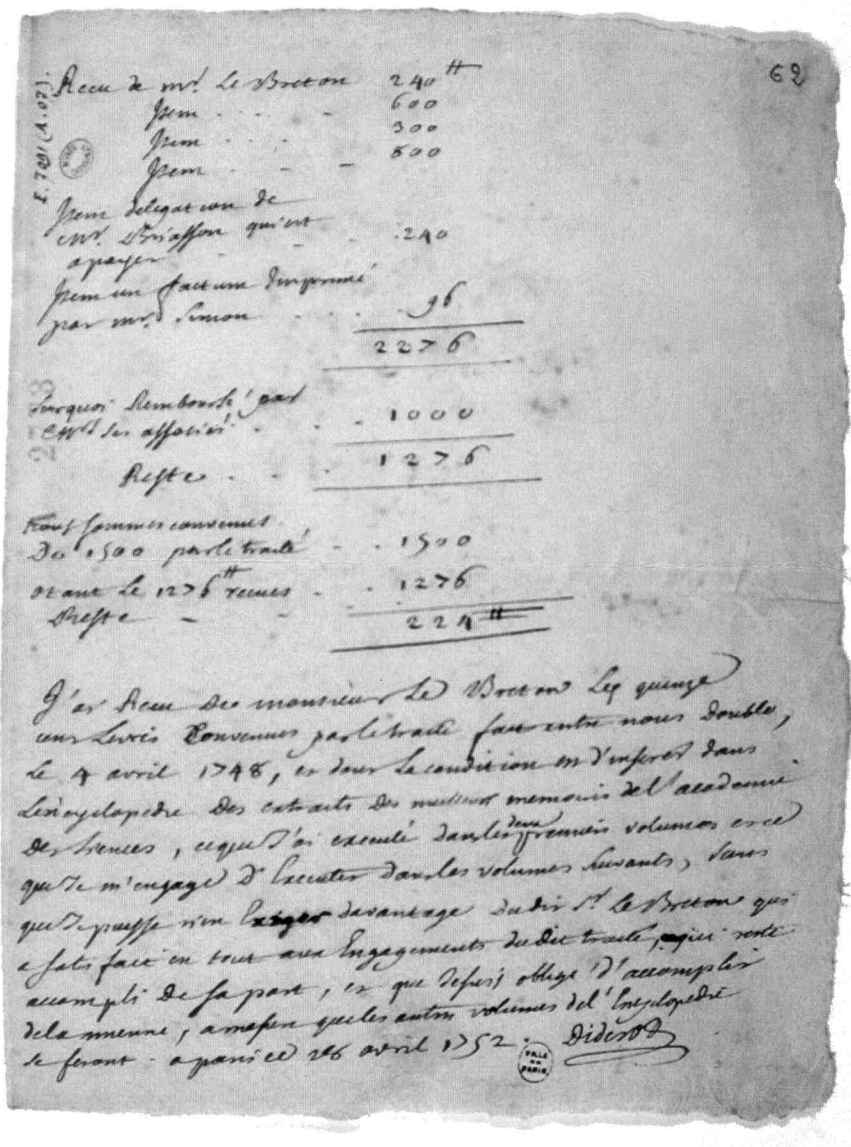 62
E. 7091 (A.07).
Recu de mr. Le Breton 240 ₶
Item . . . . - 600
Item . . . . 300
Item - - - 800
Item délégation de
Mr. Briasson qui est
a payer - - - - 240
Item un factum Imprimé
par mr. Simon . . . . 96
2276
Surquoi Remboursé par
Mrs ses associés . . . 1000
Reste . . . 1276
Nous sommes convenus
De 1500 par le traité . . 1500
otant Le 1276 ₶ recues . . 1276
Reste - - 224 ₶
J'ai Recu de monsieur Le Breton Les quinze
cens Livres Convenues par le traité fait entre nous Double,
Le 4 avril 1748, et dont La condition est d'inserer dans
L'encyclopedie Des extraits Des meilleurs memoires de l'academie
Des Sciences, ce que J'ai executé dans les deux premiers volumes et ce
que Je m'engage D'Executer dans les volumes suivants, sans
que Je puisse rien Exiger davantage du dit Sr. Le Breton qui
a satisfait en tout aux Engagements du dit traité, qui reste
accompli De sa part, et que Je suis obligé d'accomplir
de la mienne, a mesure que les autres volumes de l'Encyclopedie
se feront. a paris ce 26 avril 1752. Diderot
VILLE DE PARIS